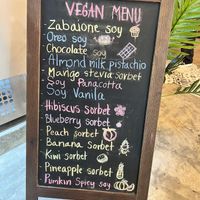 VEGAN MENU
- Zabaione soy
- Oreo soy
- Chocolate soy
- Almond milk pistachio
- Mango stevia sorbet
- Soy Panacotta
- Soy Vanila
- Hibiscus sorbet
- Blueberry sorbet
- Peach sorbet
- Banana Sorbet
- Kiwi sorbet
- Pineapple sorbet
- Pumkin Spicy soy